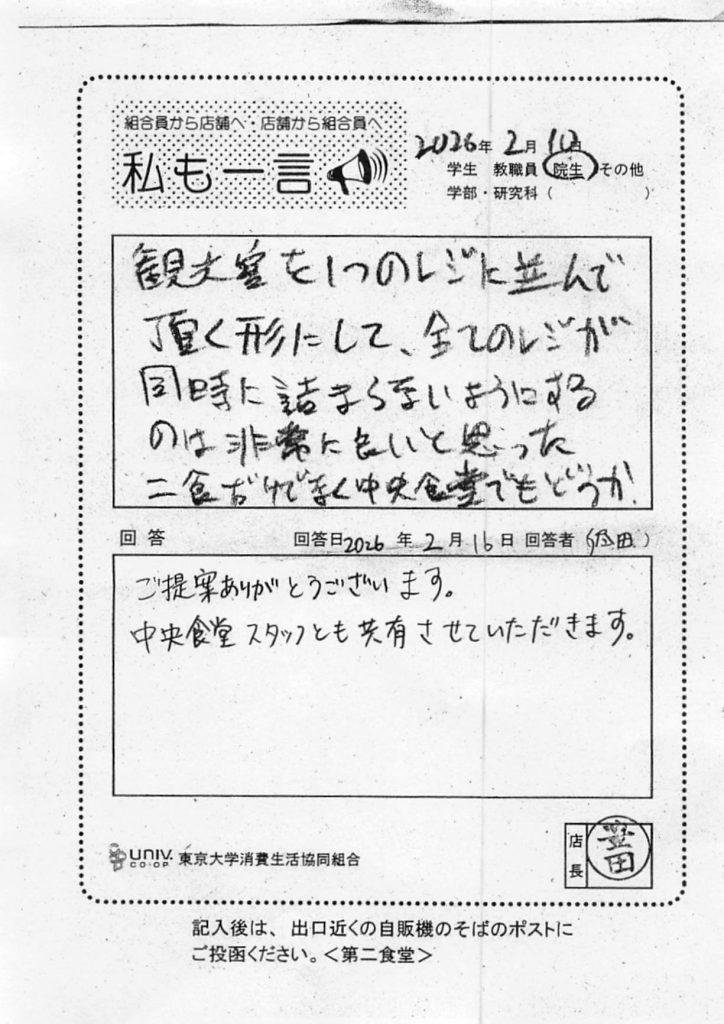 組合員から店舗へ・店舗から組合員へ
私も一言
2026年 2月 10日
学生 教職員 院生 その他
学部・研究科( )
観光客を1つのレジに並んで
頂く形にして、全てのレジが
同時に詰まらないようにする
のは非常に良いと思った
二食だけでなく中央食堂でもどうか。
回答 回答日2026年2月16日 回答者( 田)
ご提案ありがとうございます。
中央食堂スタッフとも共有させていただきます。
UNIV. CO-OP 東京大学消費生活協同組合
店長 豊田
記入後は、出口近くの自販機のそばのポストに
ご投函ください。<第二食堂>